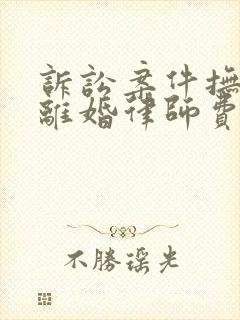 訴訟案件撫
離婚律師費
不勝瑤光